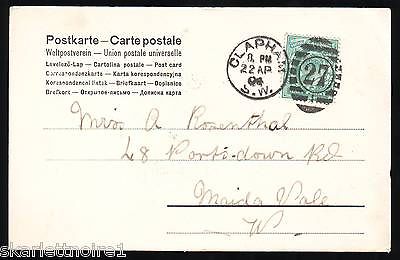 Postkarte — Carte postale
Weltpostverein — Union postale universelle
Levelező-Lap — Cartolina postale — Post card
Correspondenzkarte — Karta korespondencyjna
Korespondenční lístek — Briefkaart — Dopisnice
Brefkort — Открытое письмо — Дописна карта
CLAPHAM
8. PM
22 AP
04
S.W.
27
Miss A Rosenthal
48 Portsdown Rd
Maida Vale
W.
skarlettnoire1